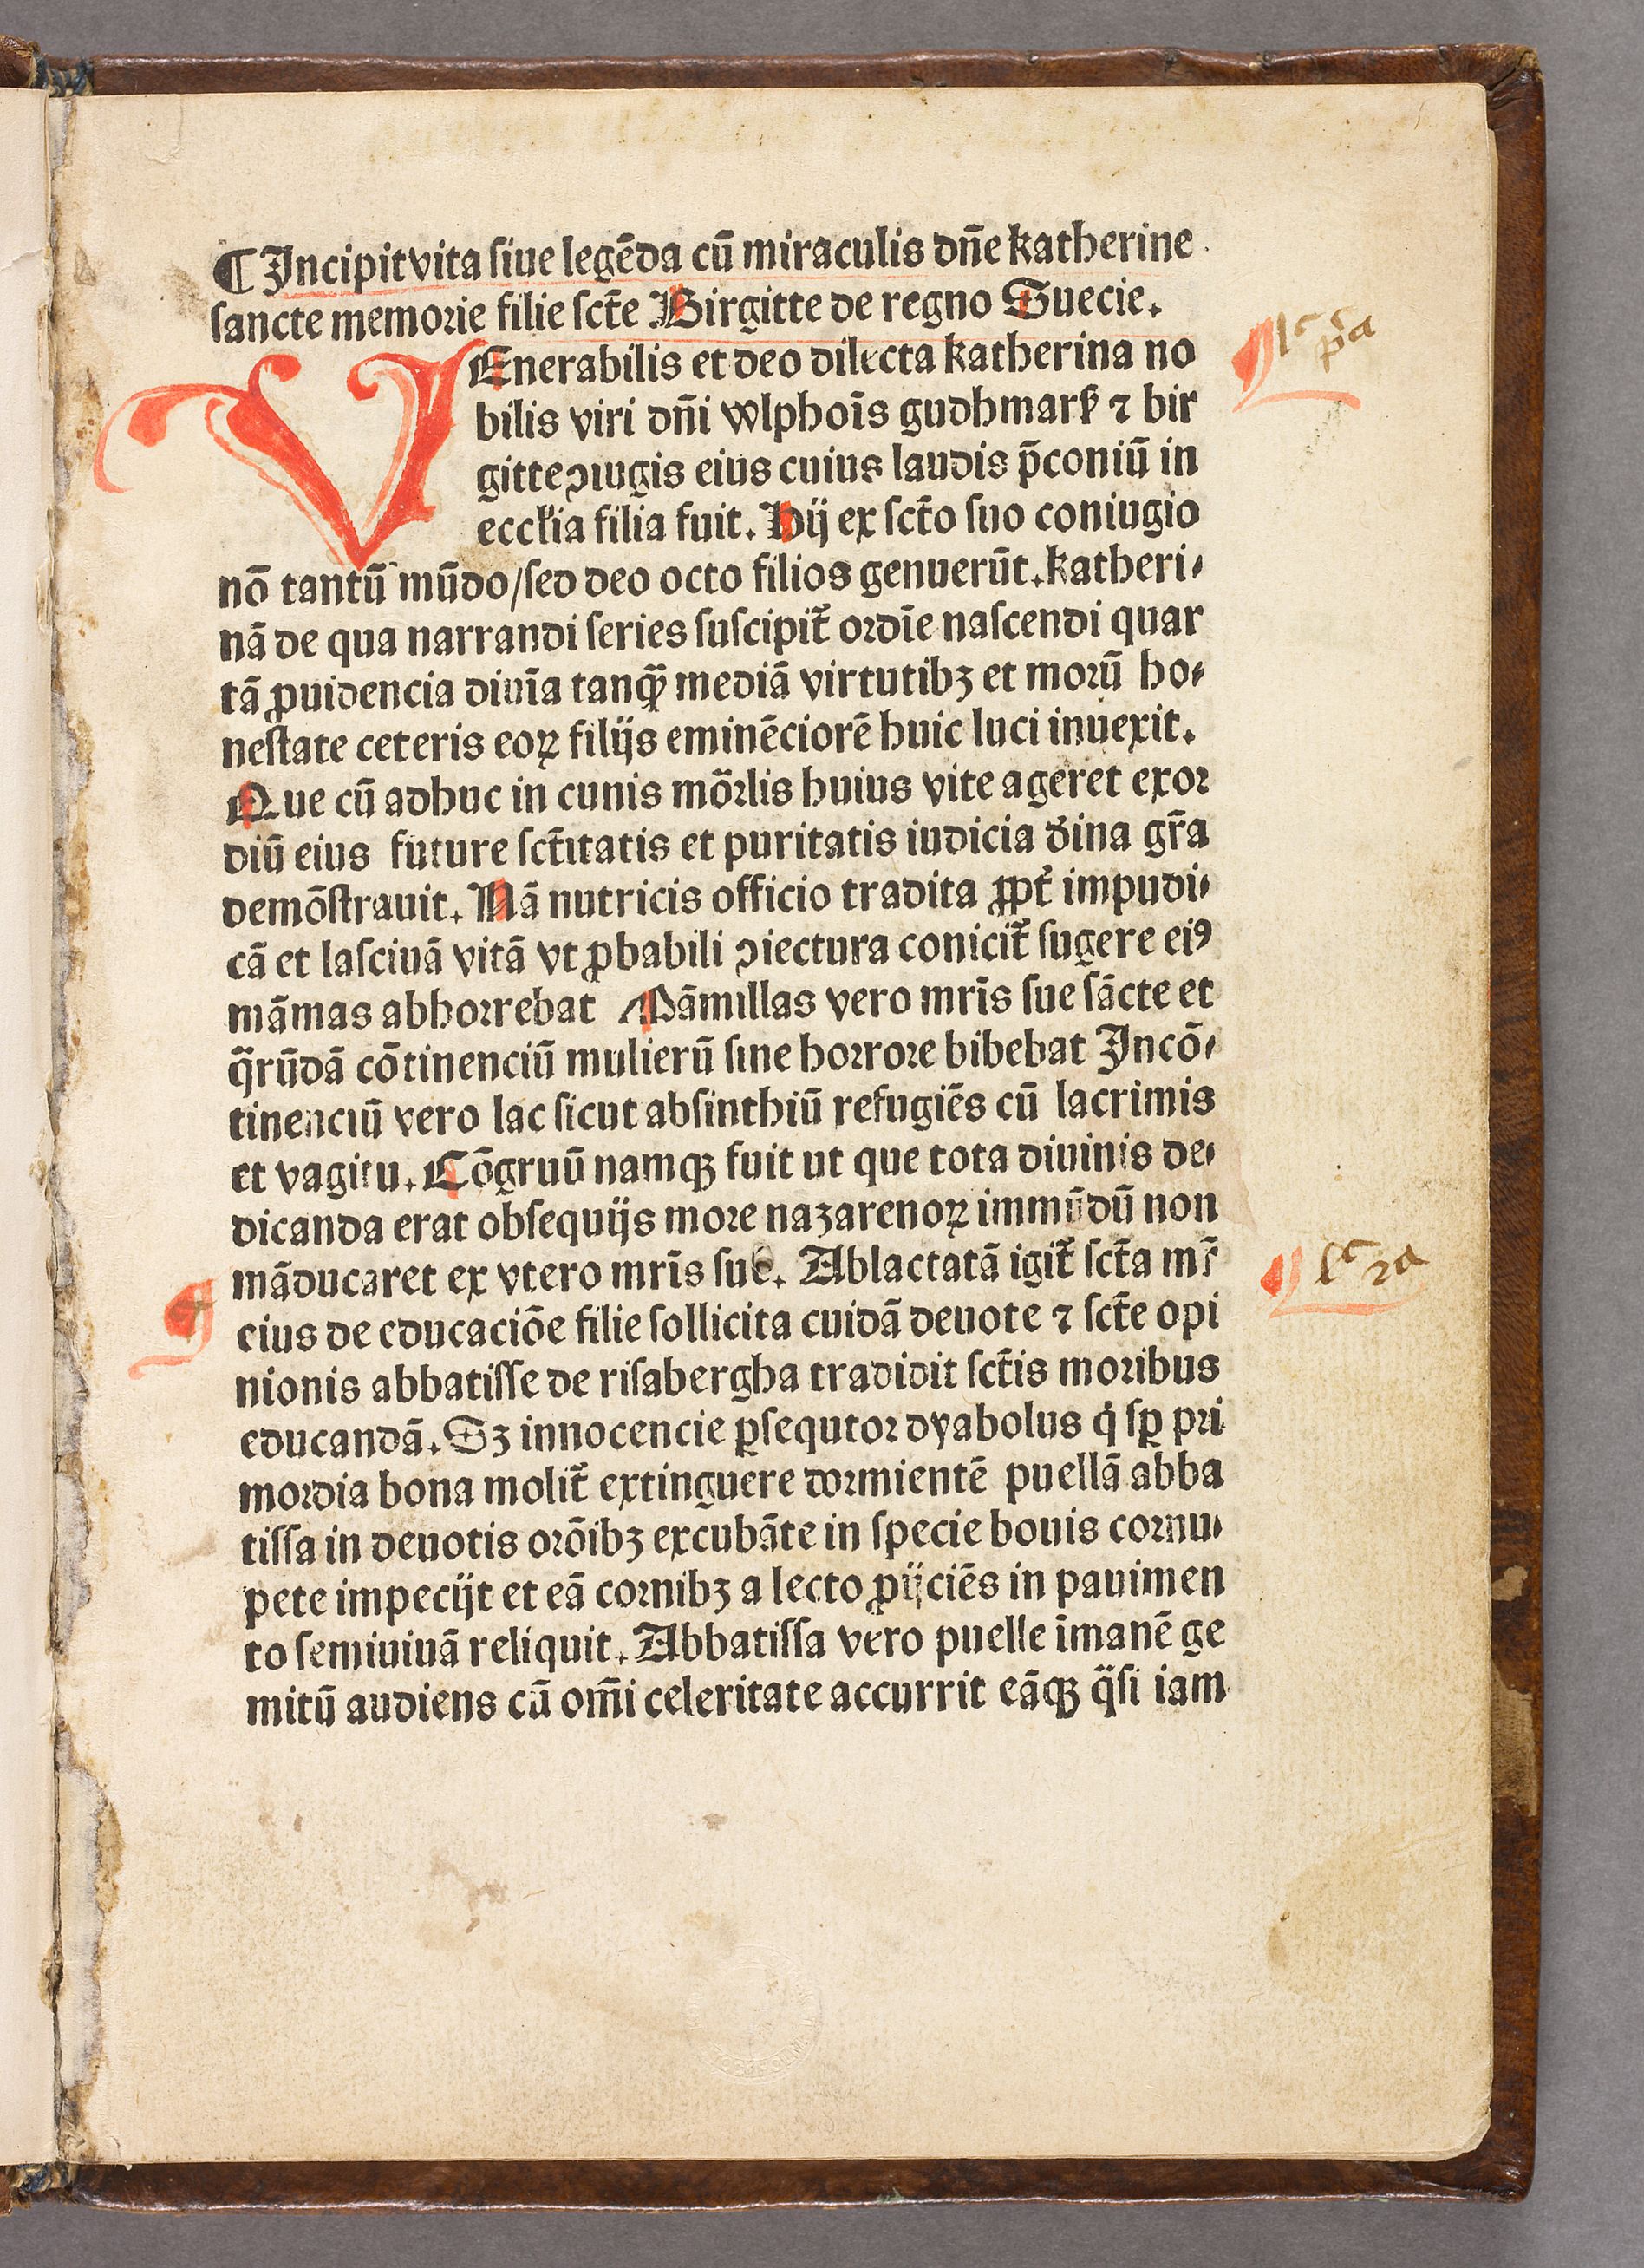 ¶ Incipit vita ſiue legēda cū miraculis dn̄e katherine
ſancte memorie filie ſct̄e Birgitte de regno Suecie.
VEnerabilis et deo dilecta katherina no
bilis viri dn̄i wlphoīs gudhmarẜ ⁊ bir
gitte ꝯiugis eius cuius laudis p̄coniū in
eccl̄ia filia fuit. Hij ex ſct̄o ſuo coniugio
nō tantū mūdo/ſed deo octo filios genuerūt. katheri⸗
nā de qua narrandi ſeries ſuſcipit̄ ordīe naſcendi quar
tā ꝓuidencia diuīa tanqȝ̄ mediā virtutibȝ et morū ho⸗
neſtate ceteris eoꝝ filijs eminēciorē huic luci inuexit.
Que cū adhuc in cunis mōrlis huius vite ageret exor
diū eius future ſct̄itatis et puritatis iudicia d̄ina gr̄a
demōſtrauit. Nā nutricis officio tradita ꝓpt̄ impudi⸗
cā et laſciuā vitā vt ꝓbabili ꝯiectura conicit̄ ſugere eiꝰ
māmas abhorrebat Māmillas vero mr̄is ſue ſācte et
q̄rūdā cōtinenciū mulierū ſine horrore bibebat Incō⸗
tinenciū vero lac ſicut abſinthiū refugiēs cū lacrimis
et vagitu. Cōgruū namqȝ fuit ut que tota diuinis de⸗
dicanda erat obſequijs more nazarenoꝝ immūdū non
māducaret ex vtero mr̄is ſue. Ablactatā igit̄ ſct̄a mr̄
eius de educaciōe filie ſollicita cuidā deuote ⁊ ſct̄e opi
nionis abbatiſſe de riſabergha tradidit ſct̄is moribus
educandā. Sȝ innocencie ꝑſequtor dyabolus q̇ ſꝑ pri
mordia bona molit̄ extinguere dormientē puellā abba
tiſſa in deuotis orōibȝ excubāte in ſpecie bouis cornu⸗
pete impecijt et eā cornibȝ a lecto ꝓijciēs in pauimen
to ſemiuiuā reliquit. Abbatiſſa vero puelle īmanē ge
mitū audiens cū om̄i celeritate accurrit eāqȝ q̄ſi iam
lc p̄a
lc 2a